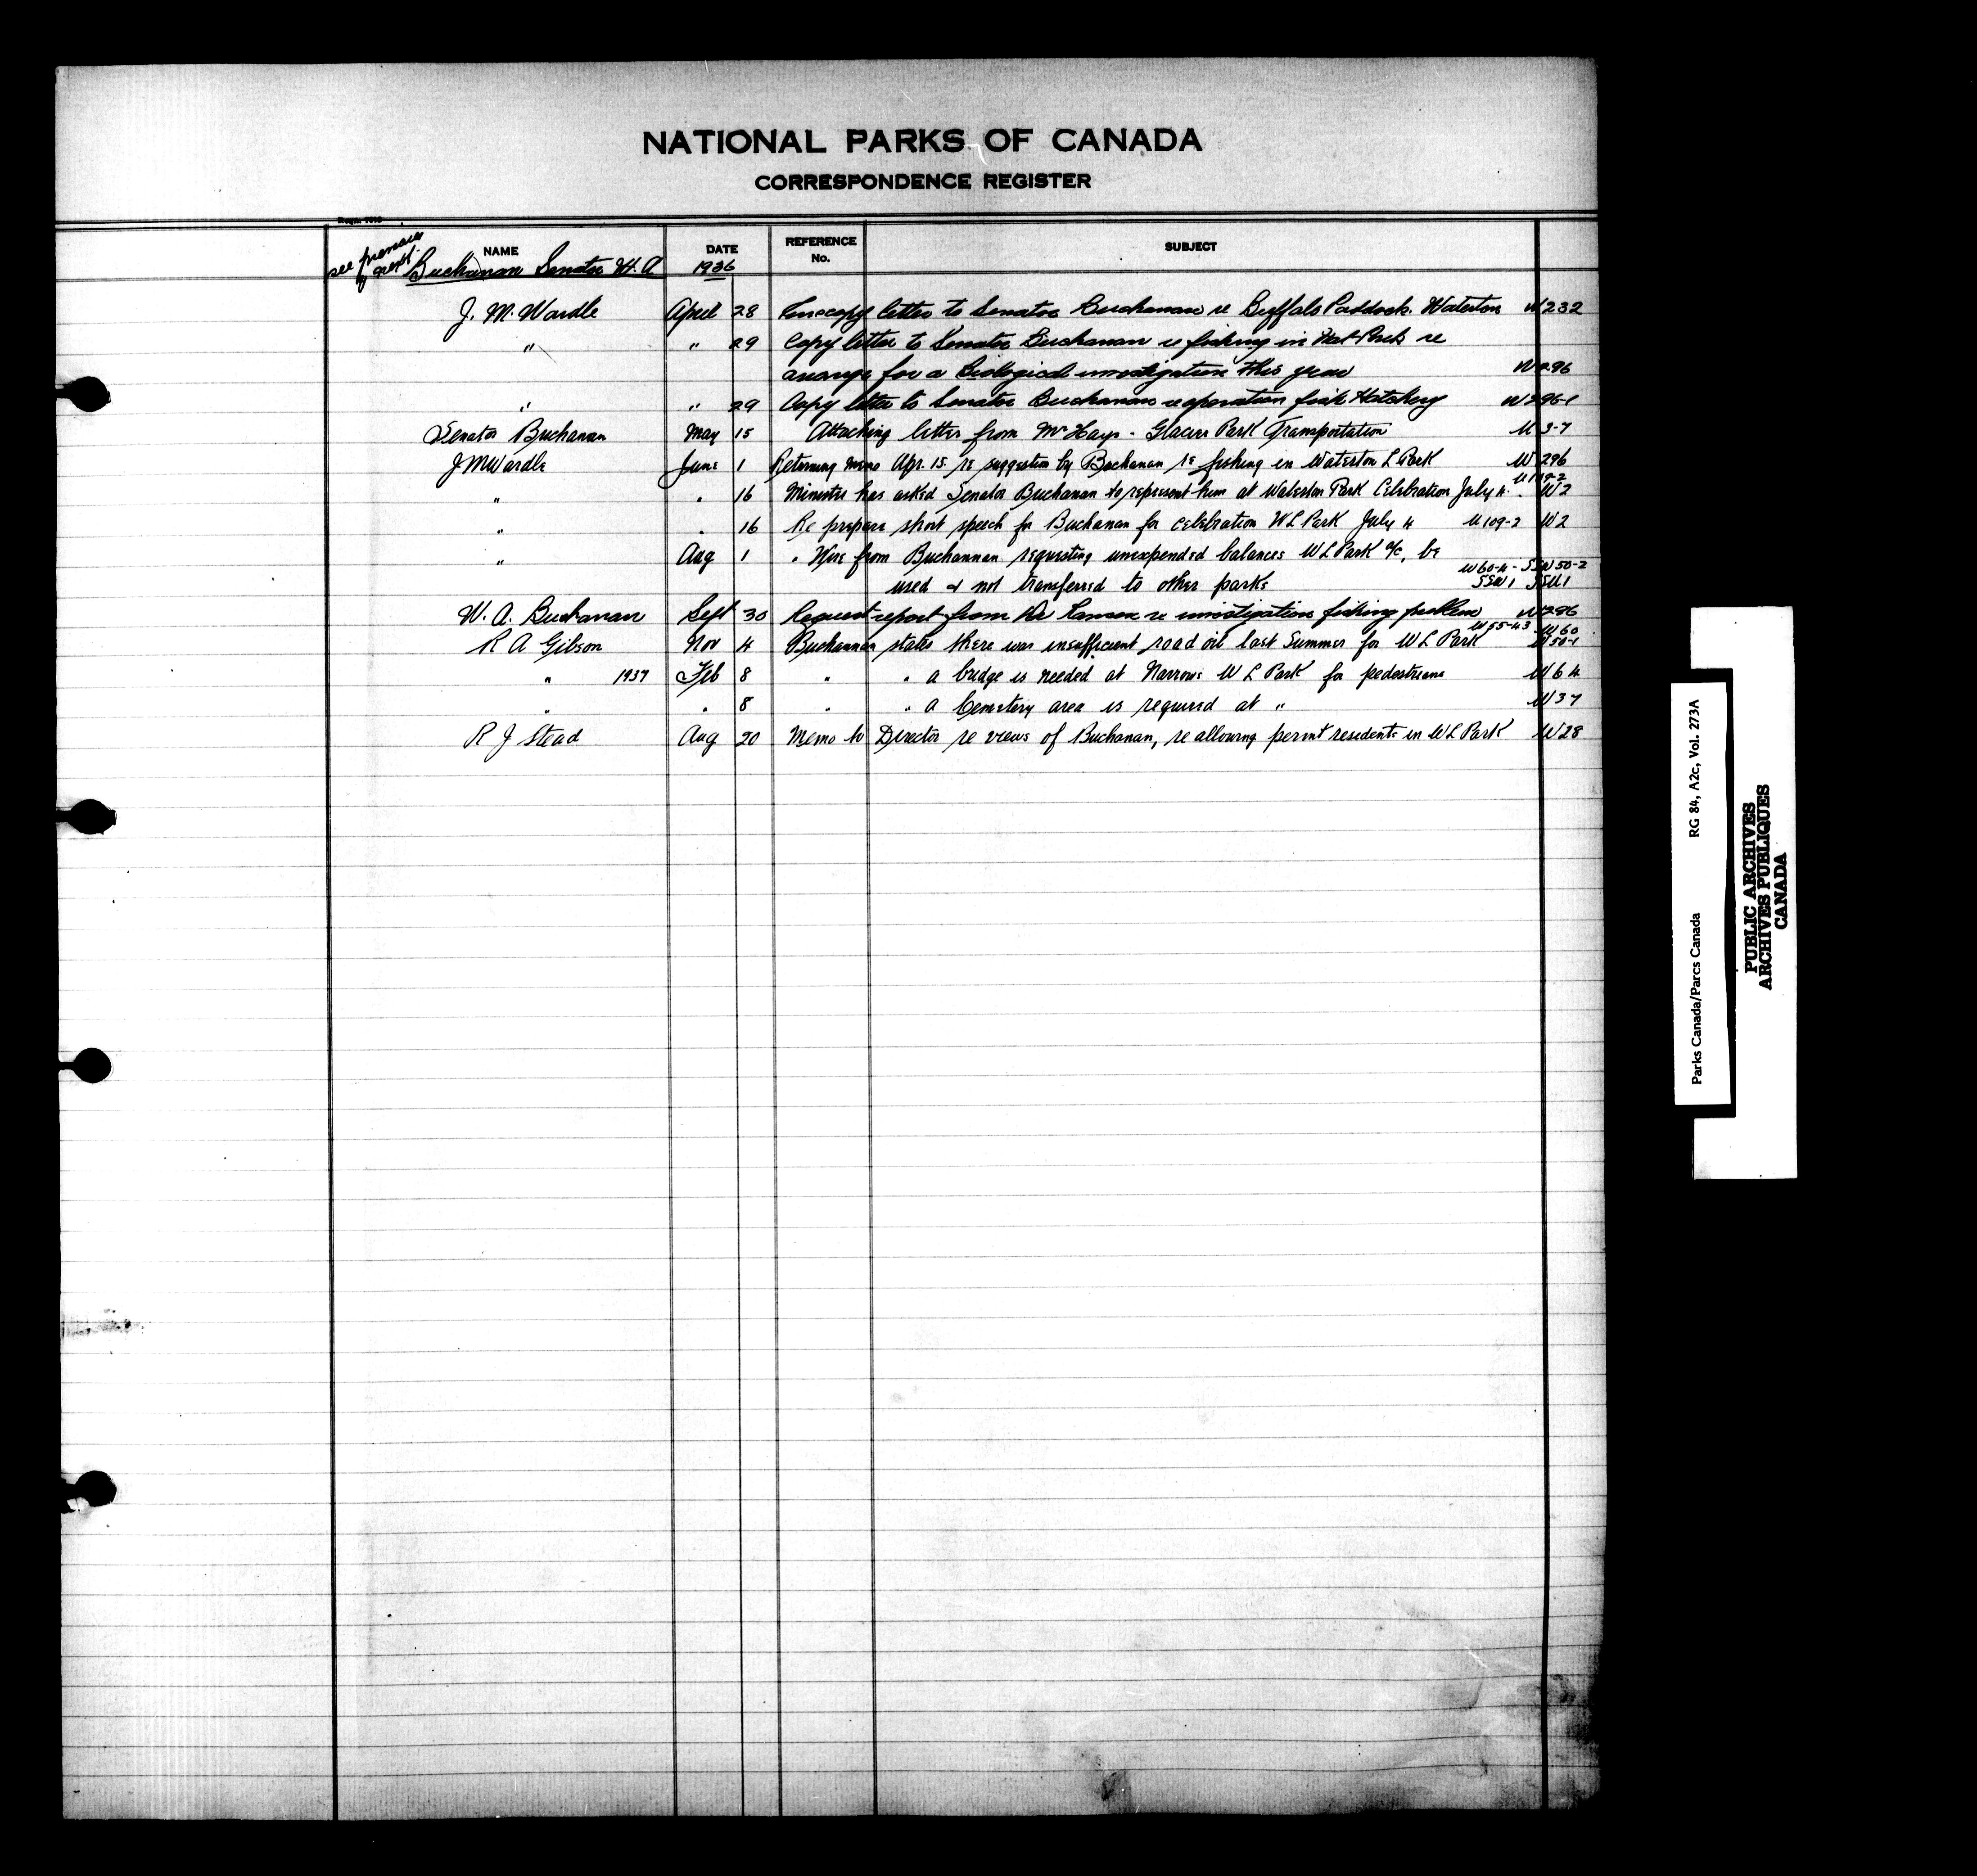 NATIONAL PARKS OF CANADA
CORRESPONDENCE REGISTER
NAME DATE REFERENCE No. SUBJECT
see previous
Buchanan Senator W. A 1936
J. M. Wardle April 28 letter to Senator Buchanan re Buffalo Paddock. Waterton W 232
" " 29 Copy letter to Senator Buchanan re fishing in Nat Parks re
arrange for a Biological investigation this year W 296
" " 29 Copy letter to Senator Buchanan re operation fish Hatchery W 296-1
Senator Buchanan May 15 Attaching letter from Mr Hays - Glacier Park Transportation U 3-7
J M Wardle June 1 Returning memo Apr. 15. re suggestion by Buchanan re fishing in Waterton L Park W 296
" " 16 Minister has asked Senator Buchanan to represent him at Waterton Park Celebration July 4. W 2
" " 16 Re prepare short speech for Buchanan for celebration W L Park July 4 U 109-2 W 2
" Aug 1 " Wire from Buchannan requesting unexpended balances W L Park a/c, be
used & not transferred to other parks W 60-4 - SSW 50-2
SSW 1 SSU 1
W. A. Buchanan Sept 30 Request report from Dr re investigation fishing problem W 296
R A Gibson Nov 4 Buchannan states there was insufficient road oil last Summer for W L Park W 55-43 W 60
W 50-1
" 1937 Feb 8 " " a bridge is needed at Narrows W L Park for pedestrians W 64
" " 8 " a Cemetery area is required at " W 37
R J Stead Aug 20 Memo to Director re views of Buchanan, re allowing permt residents in W L Park W 28
Parks Canada/Parcs Canada RG 84, A2c, Vol. 273A
PUBLIC ARCHIVES
ARCHIVES PUBLIQUES
CANADA